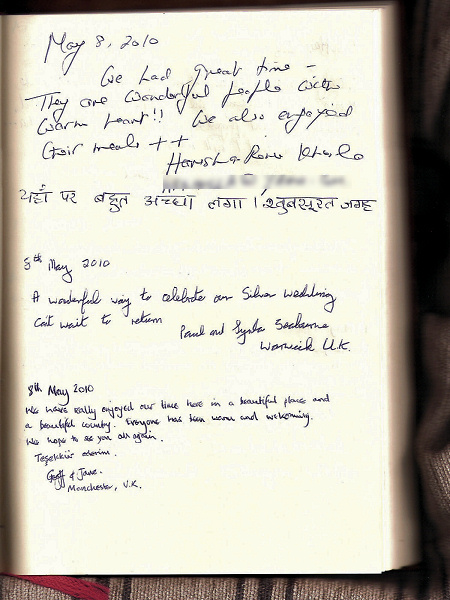 May 8, 2010
We had great time –
They are wonderful people with
warm heart!! We also enjoyed
their meals ++
यहाँ पर बहुत अच्छा लगा । खुबसूरत जगह
8th May 2010
A wonderful way to celebrate our Silver wedding
can't wait to return
Paul and
Warwick U.K.
8th May 2010
We have really enjoyed our time here in a beautiful place and
a beautiful country. Everyone has been warm and welcoming.
We hope to see you all again.
Teşekkür ederim.
Geoff & Jane.
Manchester, U.K.